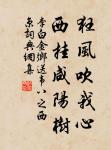 狂風吹我心
西挂咸陽樹
李白金鄉送韋八之西
京詞典網集